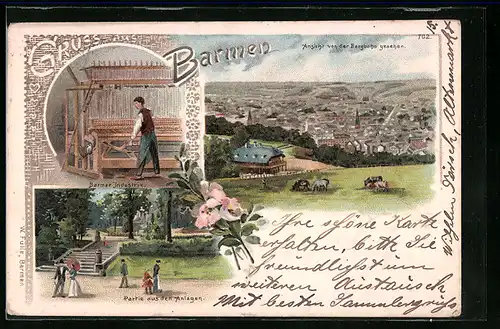 Gruss aus
Barmen
702.
Ansicht von der Bergbahn gesehen.
Barmer Industrie.
Partie aus den Anlagen.
Barmen.
Ihre schöne Karte
erhalten, bitte Sie
freundlichst um
weiteren Austausch
Mit besten Sammlergruss